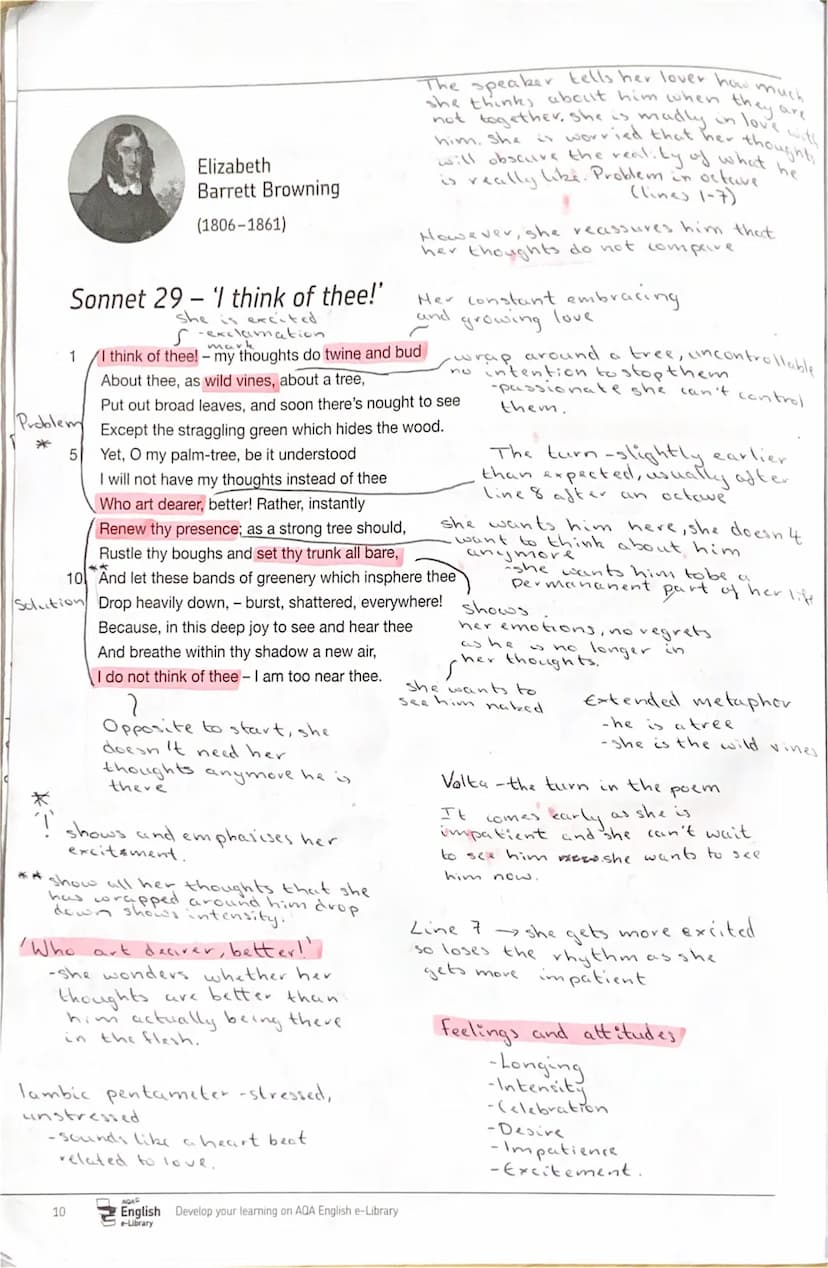 The speaker tells her lover how much
she thinks about him when they are
not together. She is madly in love with
him. She is worried that her thoughts
will obscure the reality of what he
is really like. Problem in octave
(lines 1-7)
However, she reassures him that
her thoughts do not compare
Elizabeth
Barrett Browning
(1806–1861)
Sonnet 29 – 'I think of thee!'
she is excited
-exclamation
mark
Her constant embracing
and growing love
1 I think of thee! – my thoughts do twine and bud
About thee, as wild vines, about a tree,
Put out broad leaves, and soon there's nought to see
Except the straggling green which hides the wood.
5 Yet, O my palm-tree, be it understood
I will not have my thoughts instead of thee
Who art dearer, better! Rather, instantly
Renew thy presence; as a strong tree should,
Rustle thy boughs and set thy trunk all bare,
10 ** And let these bands of greenery which insphere thee
Drop heavily down, – burst, shattered, everywhere!
Because, in this deep joy to see and hear thee
And breathe within thy shadow a new air,
I do not think of thee – I am too near thee.
Problem
*
Solution
wrap around a tree, uncontrollable
no intention to stop them
-passionate she can't control
them.
The turn - slightly earlier
than expected, usually after
line 8 after an octave
she wants him here, she doesn't
want to think about him
anymore
-she wants him to be a
permananent part of her life
shows
her emotions, no regrets
as he is no longer in
her thoughts.
she wants to
see him naked
Extended metaphor
-he is a tree
-she is the wild vines
Opposite to start, she
doesn't need her
thoughts anymore he is
there
Volta - the turn in the poem
It comes early as she is
impatient and she can't wait
to see him she wants to see
him now.
*
'!' shows and emphasises her
excitement.
** show all her thoughts that she
has wrapped around him drop
down shows intensity.
Line 7 → she gets more excited
so loses the rhythm as she
gets more impatient
'Who art dearer, better!'
-she wonders whether her
thoughts are better than
him actually being there
in the flesh.
Feelings and attitudes
-Longing
-Intensity
-Celebration
-Desire
-Impatience
-Excitement.
Iambic pentameter - stressed,
unstressed
-sounds like a heart beat
related to love.
10 AQA English e-Library Develop your learning on AQA English e-Library